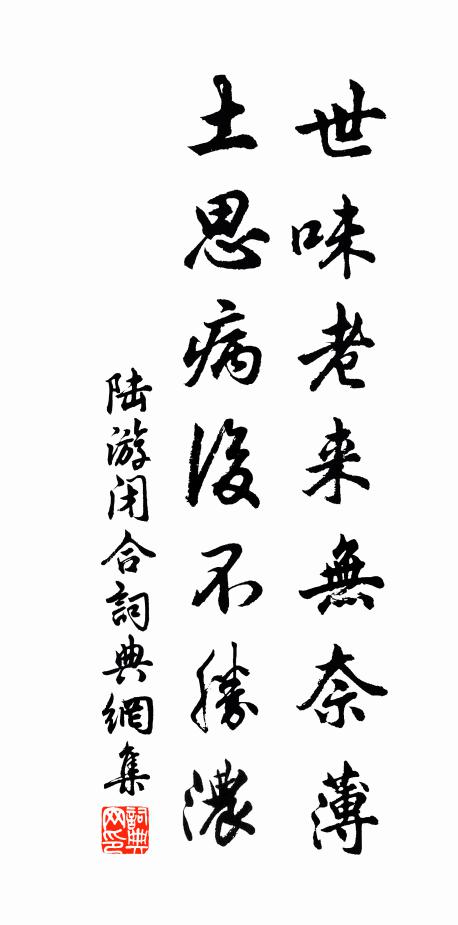 世味老来無奈薄
土思病後不勝濃
陆游闭合詞典網集
詞典网印